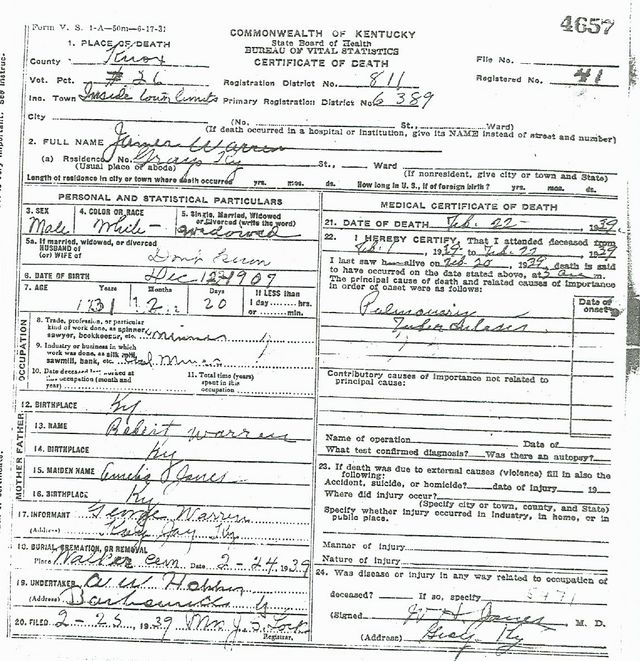 Form V. S. 1-A—50m—6-17-3
4657
COMMONWEALTH OF KENTUCKY
State Board of Health
BUREAU OF VITAL STATISTICS
CERTIFICATE OF DEATH
1. PLACE OF DEATH
County Knox
File No.
Vot. Pct. #26 Registration District No. 811 Registered No. 41
Inc. Town Inside town limits Primary Registration District No. 6389
City (No. St., Ward)
(If death occurred in a hospital or institution, give its NAME instead of street and number)
2. FULL NAME James Warren
(a) Residence No. Grays Ky St., Ward
(Usual place of abode) (If nonresident, give city or town and State)
Length of residence in city or town where death occurred yrs. mos. ds. How long in U. S., if of foreign birth? yrs. mos. ds.
PERSONAL AND STATISTICAL PARTICULARS
3. SEX Male
4. COLOR OR RACE White
5. Single, Married, Widowed or Divorced (write the word) widowed
5a. If married, widowed, or divorced
HUSBAND of
(or) WIFE of
6. DATE OF BIRTH Dec 12 1907
7. AGE Years Months Days If LESS than
31 2 20 1 day hrs.
or min.
OCCUPATION
8. Trade, profession, or particular
kind of work done, as spinner,
sawyer, bookkeeper, etc. miner
9. Industry or business in which
work was done, as silk mill,
sawmill, bank, etc. Coal Mines
10. Date deceased last worked at
this occupation (month and
year)
11. Total time (years)
spent in this
occupation
12. BIRTHPLACE Ky
FATHER
13. NAME Robert Warren
14. BIRTHPLACE Ky
MOTHER
15. MAIDEN NAME Amelia Jones
16. BIRTHPLACE Ky
17. INFORMANT George Warren
(Address) Kay Jay Ky
18. BURIAL, CREMATION, OR REMOVAL
Place Walker Cem Date 2-24 1939
19. UNDERTAKER
(Address) Barbourville Ky
20. FILED 2-25 1939 Mrs J. S.
Registrar.
MEDICAL CERTIFICATE OF DEATH
21. DATE OF DEATH Feb. 22 1939
22. I HEREBY CERTIFY, That I attended deceased from
Feb. 1 1939 to Feb. 1939
I last saw h alive on Feb 20 1939 death is said
to have occurred on the date stated above, at m.
The principal cause of death and related causes of importance
in order of onset were as follows:
Date of onset
Pulmonary
Tuberculosis
Contributory causes of importance not related to
principal cause:
Name of operation Date of
What test confirmed diagnosis? Was there an autopsy?
23. If death was due to external causes (violence) fill in also the
following:
Accident, suicide, or homicide? date of injury 19
Where did injury occur?
(Specify city or town, county, and State)
Specify whether injury occurred in industry, in home, or in
public place.
Manner of injury
Nature of injury
24. Was disease or injury in any way related to occupation of
deceased? If so, specify
(Signed W H Jones M. D.
(Address) Grays Ky